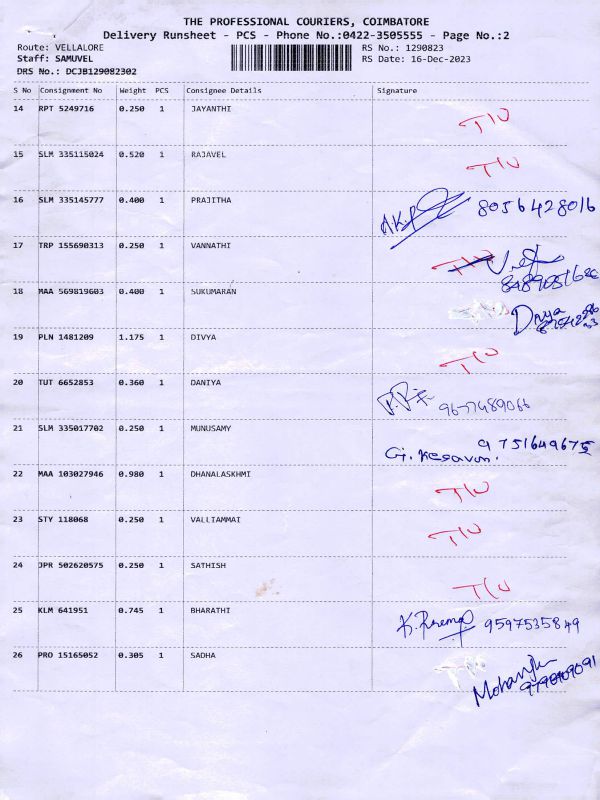 THE PROFESSIONAL COURIERS, COIMBATORE
Delivery Runsheet - PCS - Phone No.:0422-3505555 - Page No.:2
Route: VELLALORE RS No.: 1290823
Staff: SAMUVEL RS Date: 16-Dec-2023
DRS No.: DCJB129082302
S No Consignment No Weight PCS Consignee Details Signature
14 RPT 5249716 0.250 1 JAYANTHI
15 SLM 335115024 0.520 1 RAJAVEL
16 SLM 335145777 0.400 1 PRAJITHA 8056428016
17 TRP 155690313 0.250 1 VANNATHI
18 MAA 569819603 0.400 1 SUKUMARAN Divya
19 PLN 1481209 1.175 1 DIVYA
20 TUT 6652853 0.360 1 DANIYA 9677489066
21 SLM 335017702 0.250 1 MUNUSAMY G. Kesavan. 9751649675
22 MAA 103027946 0.980 1 DHANALASKHMI
23 STY 118068 0.250 1 VALLIAMMAI
24 JPR 502620575 0.250 1 SATHISH
25 KLM 641951 0.745 1 BHARATHI 9597535849
26 PRO 15165052 0.305 1 SADHA